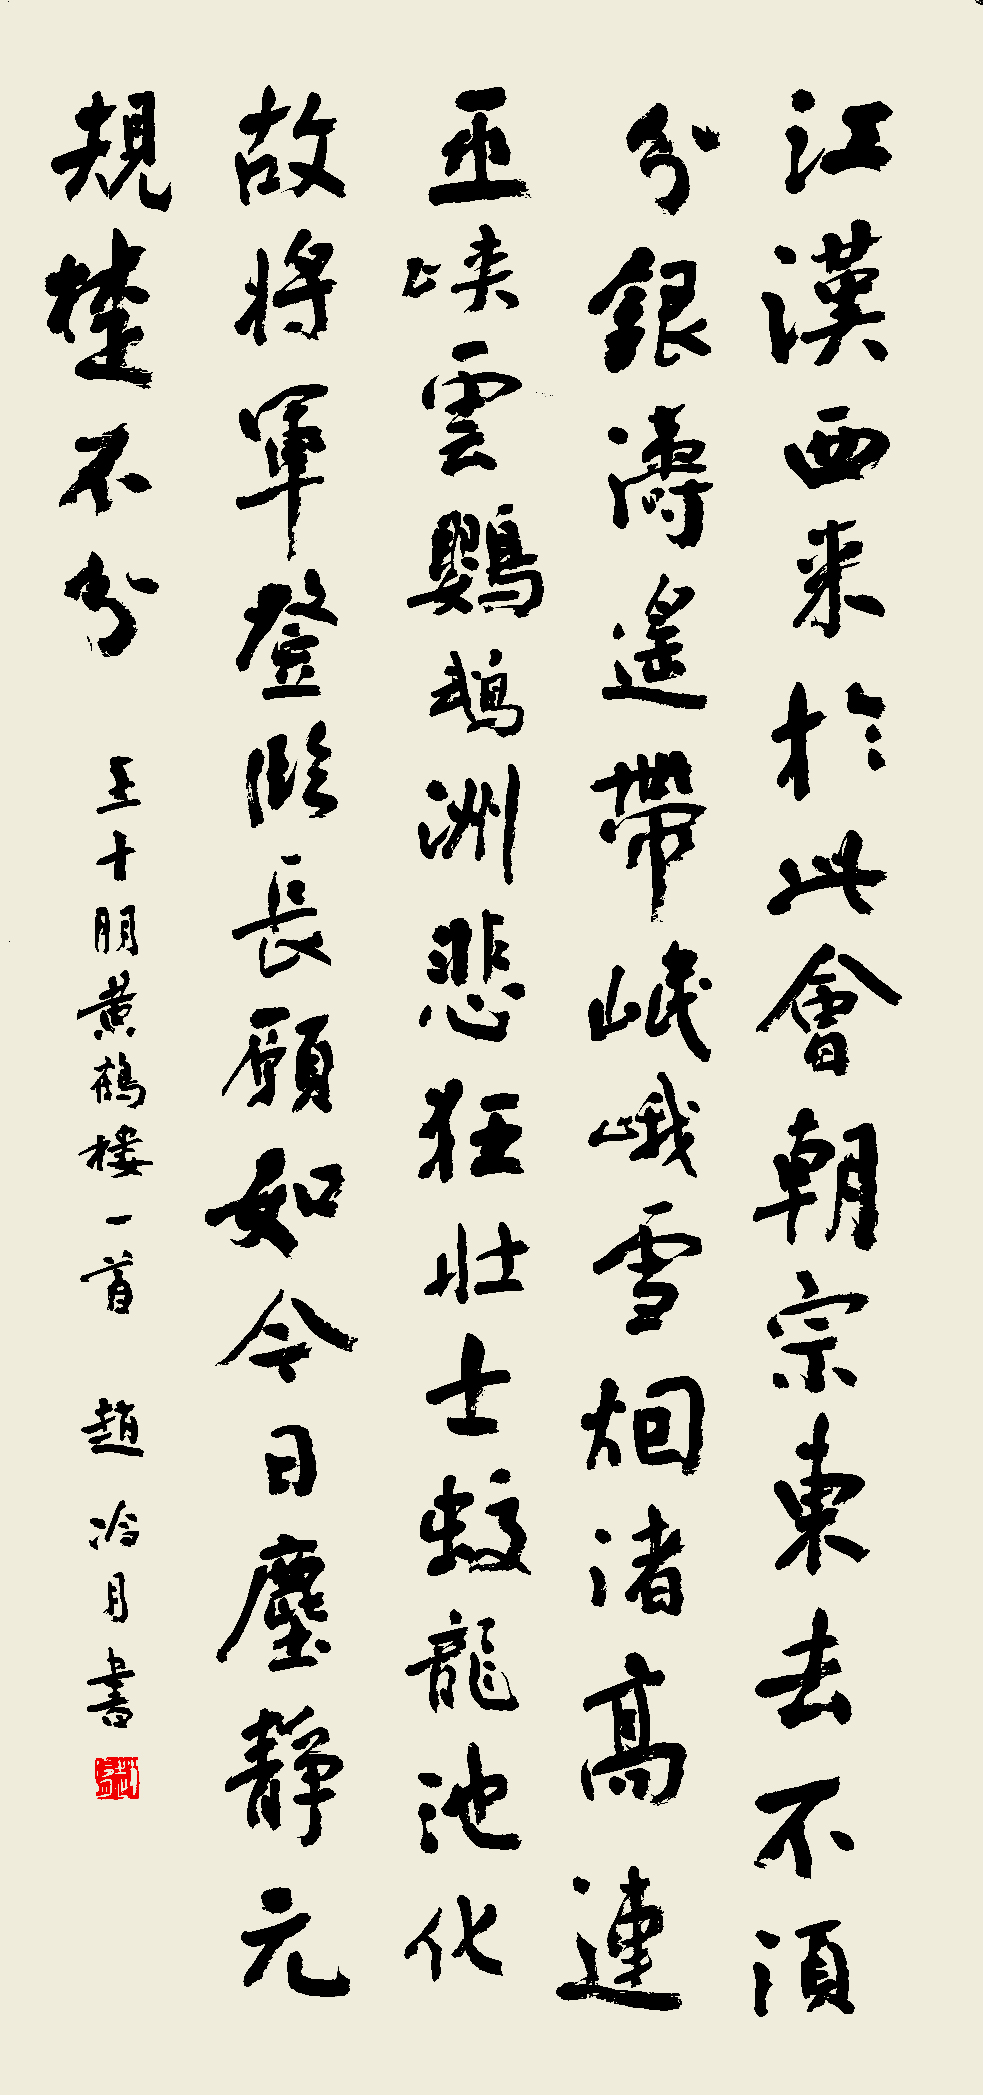 江漢西来於此會朝宗東去不須
分銀濤遥帶岷峨雪烟渚髙連
巫峽雲鸚鵡洲悲狂壯士蛟龍池化
故將軍登臨長願如今日塵靜元
規楚不分
王十朋黄鶴樓一首 趙冷月書